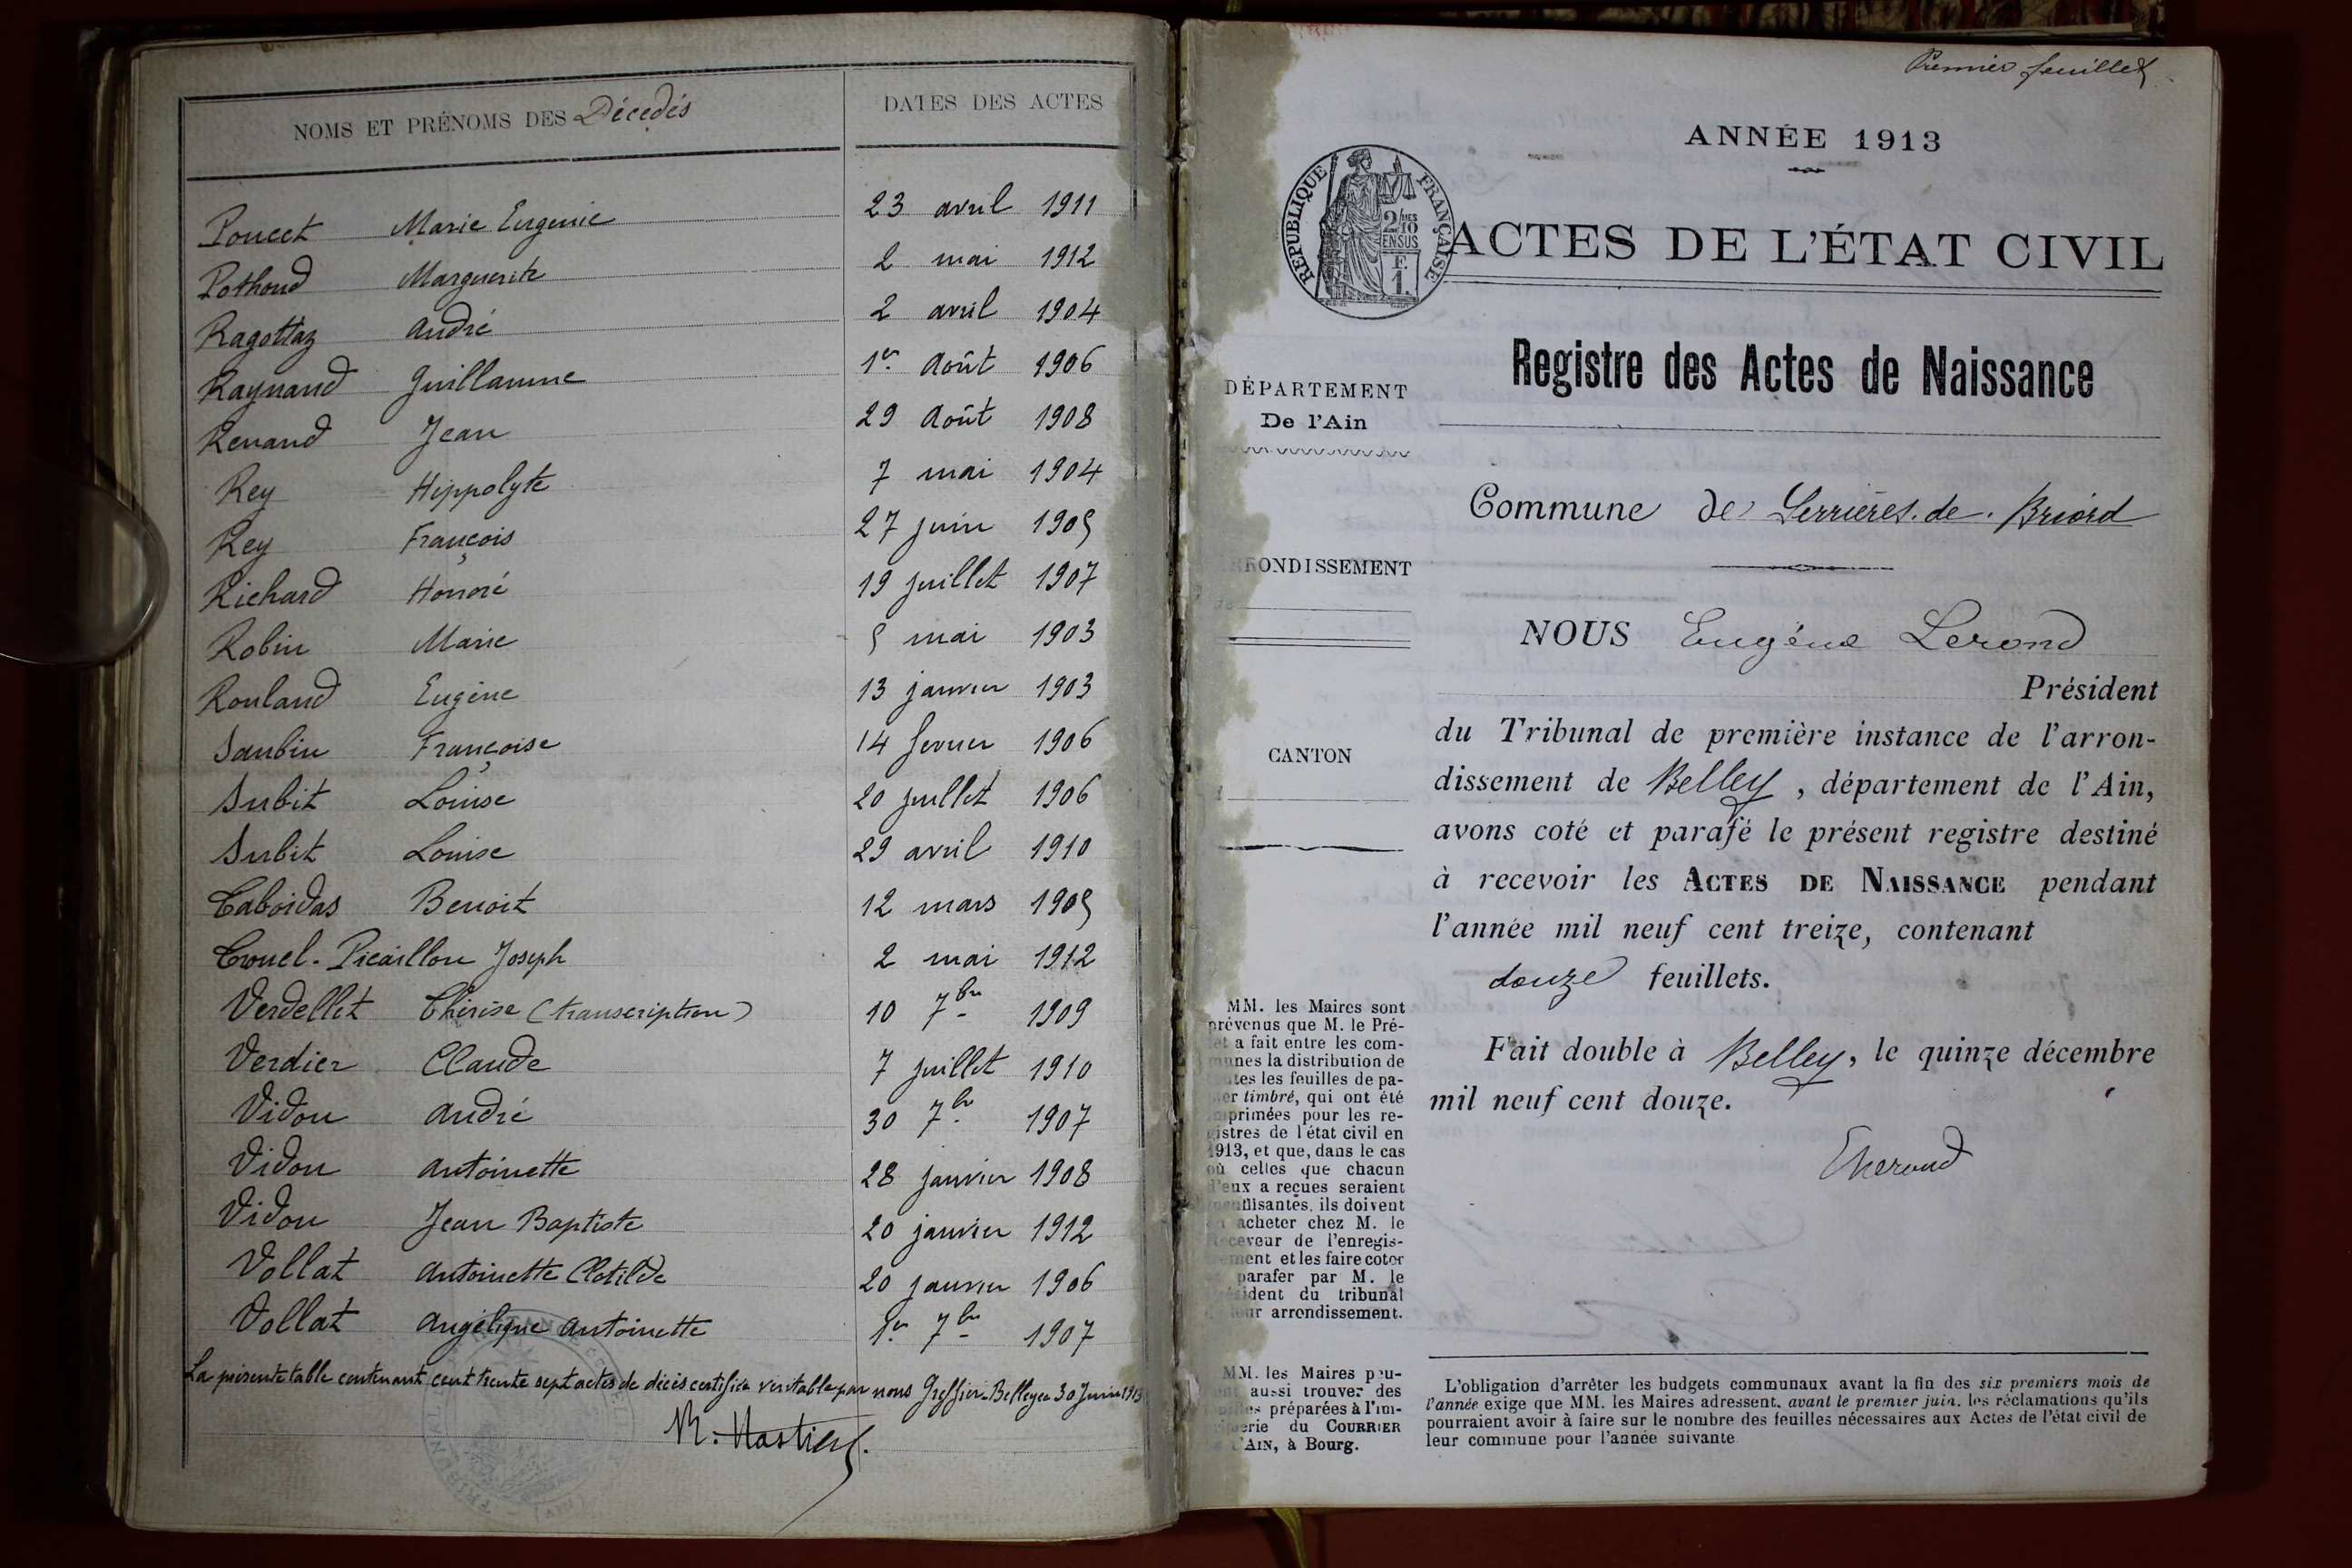 NOMS ET PRÉNOMS DES Décedés DATES DES ACTES
Poncet Marie Eugenie 23 avril 1911
Pothoud Marguerite 2 mai 1912
Ragottaz André 2 avril 1904
Raynaud Guillaume 1er Août 1906
Renaud Jean 29 Août 1908
Rey Hippolyte 7 mai 1904
Rey François 27 juin 1905
Richard Honoré 19 juillet 1907
Robin Marie 5 mai 1903
Rouland Eugène 13 janvier 1903
Saubin Françoise 14 fevrier 1906
Subit Louise 20 juillet 1906
Subit Louise 29 avril 1910
Taboidas Benoit 12 mars 1905
Picaillon Joseph 2 mai 1912
Verdellet Thérèse (transcription) 10 7bre 1909
Verdier Claude 7 juillet 1910
Vidon André 30 7bre 1907
Vidon Antoinette 28 janvier 1908
Vidon Jean Baptiste 20 janvier 1912
Vollat Antoinette Clotilde 20 janvier 1906
Vollat Angélique Antoinette 1er 7bre 1907
La présente table contenant cent trente sept actes de décès certifiée véritable par nous Greffier. Belley le 30 Juin 1913
Premier feuillet
ANNÉE 1913
RÉPUBLIQUE FRANÇAISE
2/MES
10
EN SUS
F.
1.
ACTES DE L'ÉTAT CIVIL
Registre des Actes de Naissance
DÉPARTEMENT
De l'Ain
Commune de Serrières.de.Briord
RONDISSEMENT
CANTON
NOUS Eugène Lerond
Président
du Tribunal de première instance de l'arron-
dissement de Belley, département de l'Ain,
avons coté et parafé le présent registre destiné
à recevoir les ACTES DE NAISSANCE pendant
l'année mil neuf cent treize, contenant
douze feuillets.
Fait double à Belley, le quinze décembre
mil neuf cent douze.
MM. les Maires sont
prévenus que M. le Pré-
et a fait entre les com-
munes la distribution de
tes les feuilles de pa-
er timbré, qui ont été
primées pour les re-
gistres de l'état civil en
1913, et que, dans le cas
où celles que chacun
d'eux a reçues seraient
insuffisantes, ils doivent
acheter chez M. le
Receveur de l'enregis-
ement et les faire coter
parafer par M. le
sident du tribunal
leur arrondissement.
MM. les Maires peu-
aussi trouver des
les préparées à l'im-
erie du COURRIER
L'AIN, à Bourg.
L'obligation d'arrêter les budgets communaux avant la fin des six premiers mois de
l'année exige que MM. les Maires adressent, avant le premier juin, les réclamations qu'ils
pourraient avoir à faire sur le nombre des feuilles nécessaires aux Actes de l'état civil de
leur commune pour l'année suivante